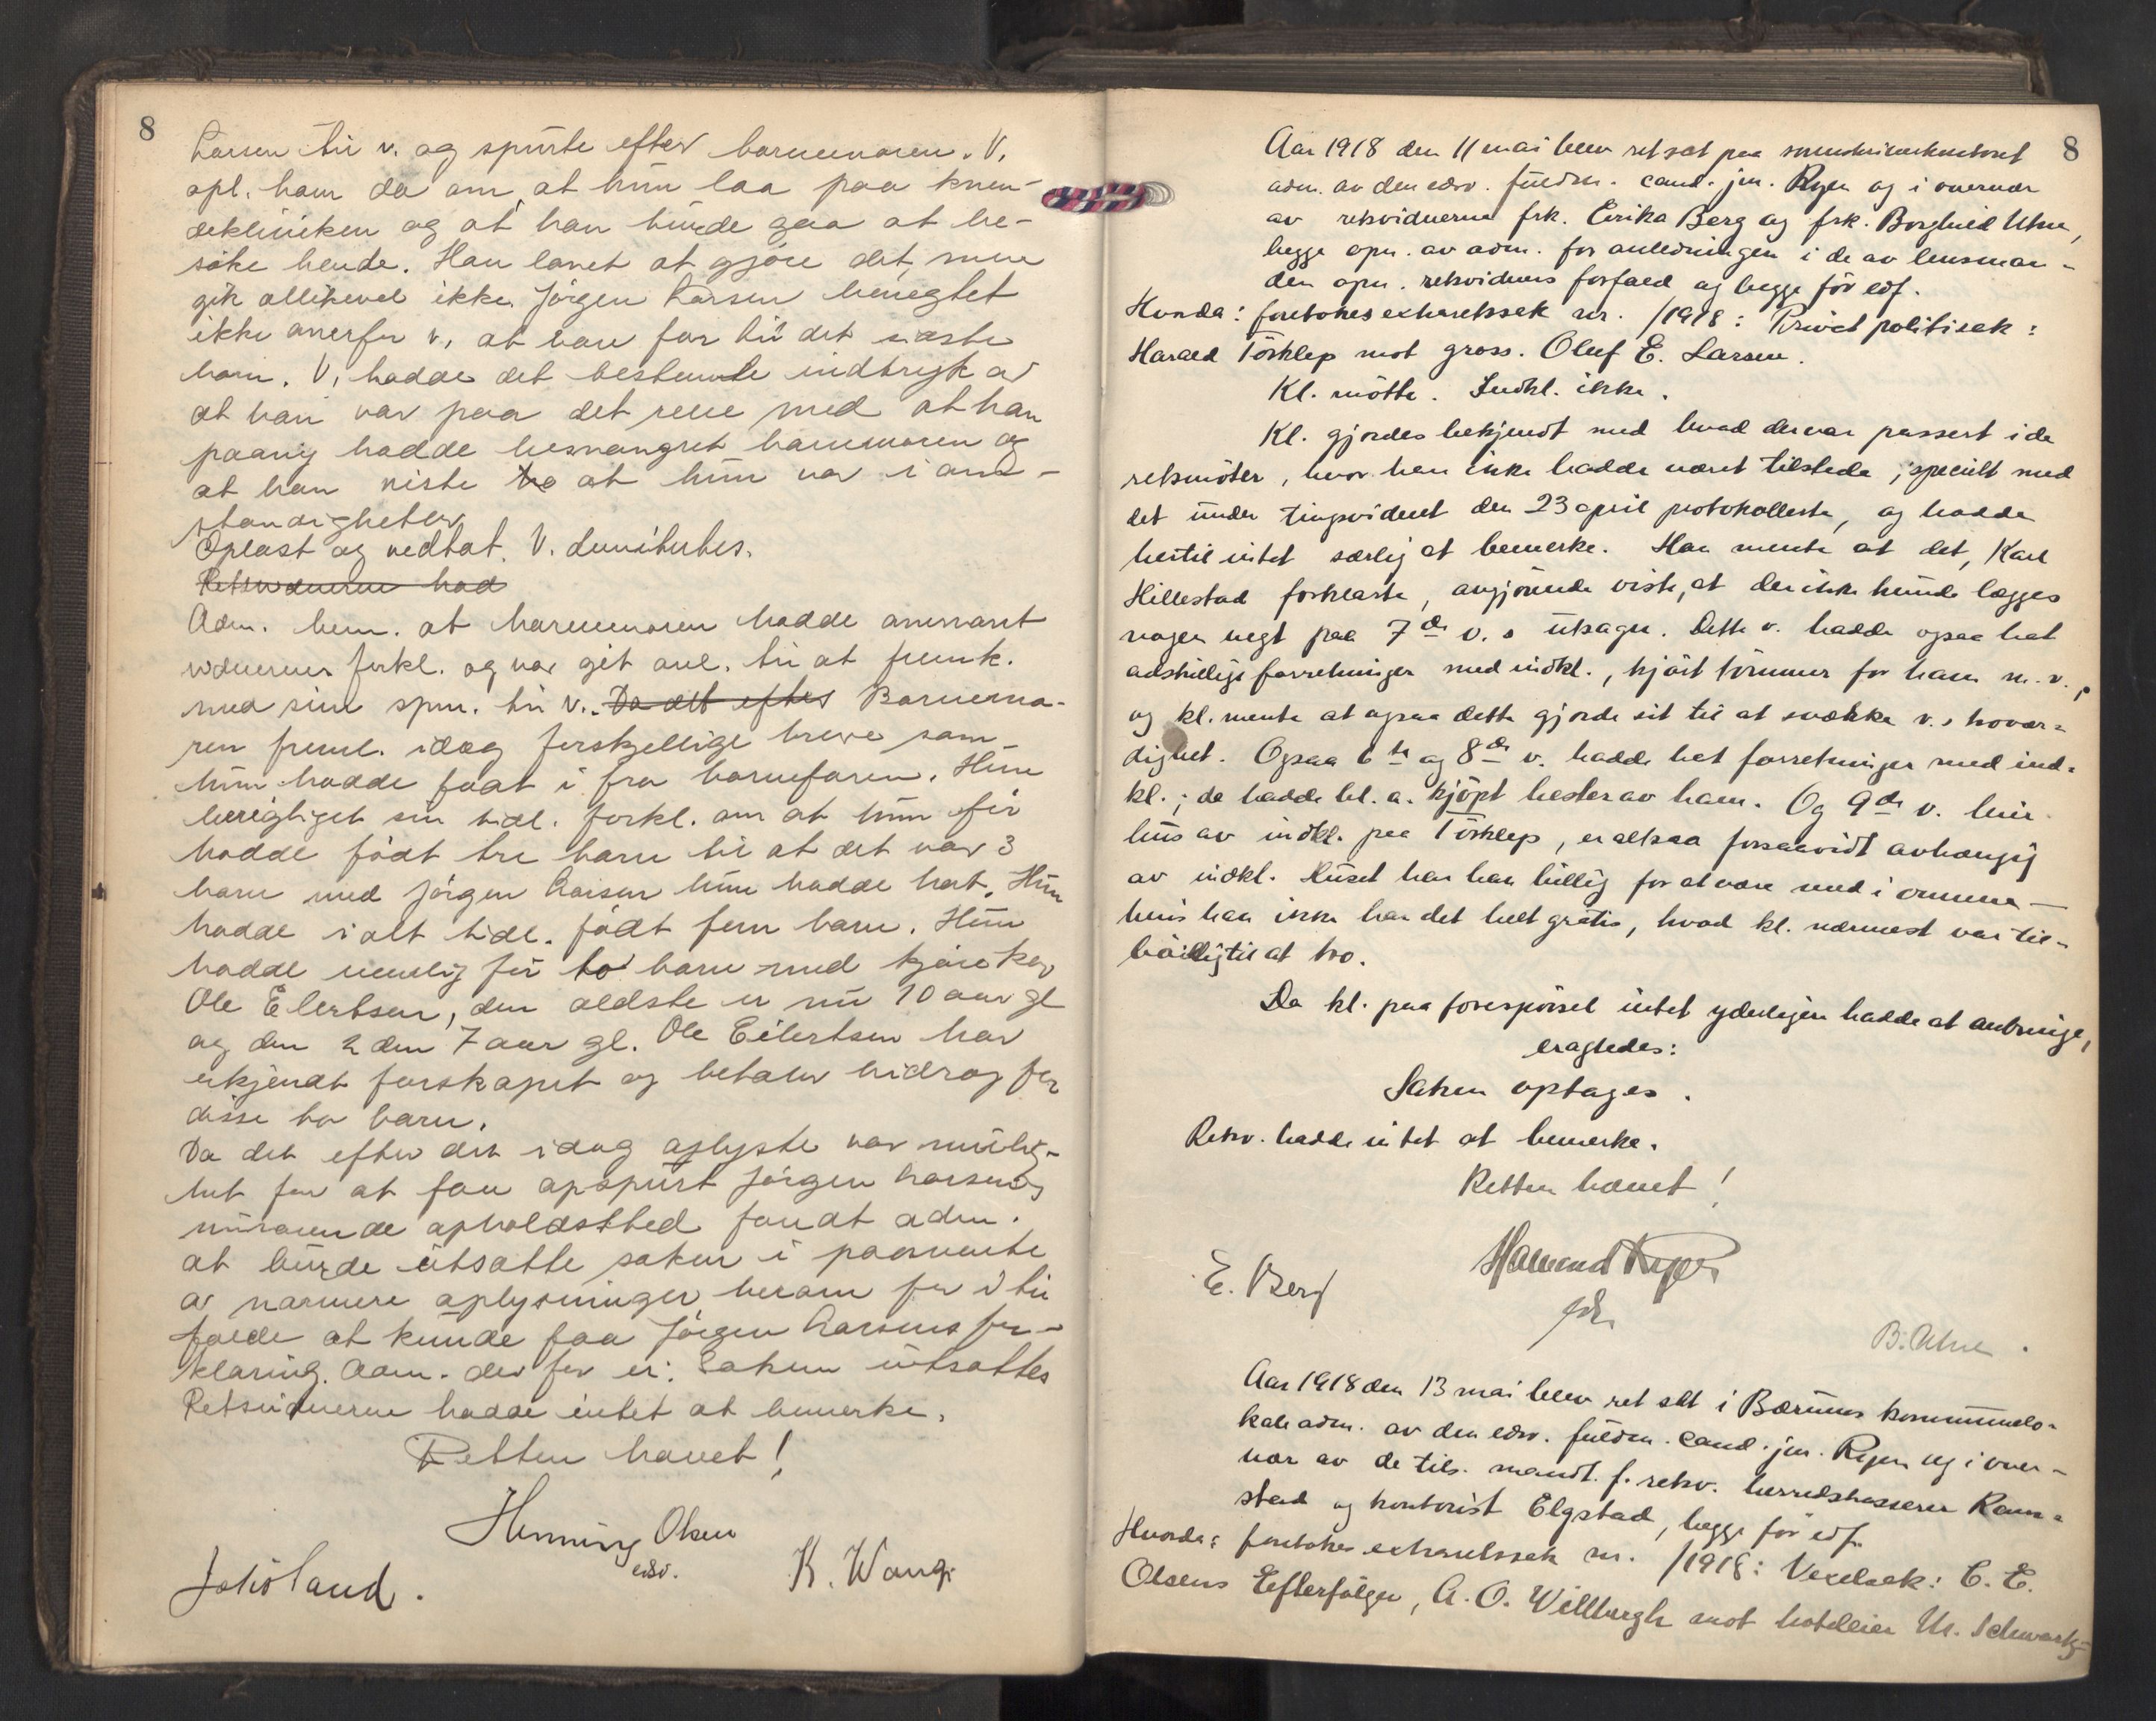 8
Larsen til v. og spurte efter barnemoren. V.
opl. ham da om, at hun laa paa kvin-
deklinikken og at han burde gaa at be-
söke hende. Han lovet at gjöre det, men
gik allikevel ikke. Jörgen Larsen benegtet
ikke overfor v. at være far til det sidste
barn. V. hadde det bestemte indtryk av
at han var paa det rene med at han
paany hadde besvangret barnemoren og
at han viste at hun var i om-
stændigheter
Oplæst og vedtat. V. demitertes.
Retsvidnerne had
Adm. bem. at barnemoren hadde overvært
vidnernes forkl. og var git anl. til at fremk.
med sine spm. til v. Da det eftes Barnemo-
ren freml. idag forskjellige breve som
hun hadde faat i fra barnefaren. Hun
berigtiget sin tidl. forkl. om at hun för
hadde födt tre barn til at det var 3
barn med Jörgen Larsen hun hadde hat. Hun
hadde i alt tidl. födt fem barn. Hun
hadde nemlig för to barn med kjörekar
Ole Eilertsen, den ældste er nu 10 aar gl
og den 2den 7 aar gl. Ole Eilertsen har
erkjendt farskapet og betaler bidrag for
disse to barn.
Da det efter det idag oplyste var mulig-
het for at faa opspurt Jörgen Larsens
nuværende opholdssted fandt adm.
at burde utsætte saken i paavente
av nærmere oplysninger herom for i til
fælde at kunde faa Jörgen Larsens for-
klaring. Adm. der for er: Saken utsættes
Retsvidnerne hadde intet at bemerke.
Retten hævet!
Henning Olsen
edsv.
K. Wang.
8
Aar 1918 den 11 mai blev ret sat paa sorenskriverkontoret
adm. av den edsv. fuldm. cand. jur. Ryen og i overvær
av retsvidnerne frk. Erika Berg og frk. Borghild Utne,
begge opn. av adm. for anledningen i de av lensman-
den opn. retsvidners forfald og begge för edf.
Hvorda: foretokes extraretssak nr. /1918: Privat politisak:
Harald Töshlep mot gross. Oluf E. Larsen.
Kl. mötte. Indkl. ikke.
Kl. gjordes bekjendt med hvad der var passert i de
retsmöter, hvor han ikke hadde været tilstede, specielt med
det under tingsvidnet den 23 april protokollerte, og hadde
hertil intet særlig at bemerke. Han mente at det, Karl
Hillestad forklarte, avgjörende viste, at der ikke kunde lægges
nogen vegt paa 7de v.s utsagn. Dette v. hadde ogsaa hat
adskillige forretninger med indkl., kjört tömmer for ham m.v.,
og kl. mente at ogsaa dette gjorde sit til at svække v.s trovær-
dighet. Ogsaa 6te og 8de v. hadde hat forretninger med ind-
kl.; de hadde bl.a. kjöpt hester av ham. Og 9de v. leier
hus av indkl. paa Töshlep, er altsaa forsaavidt avhængig
av indkl. Huset har han billig for at være med i ommer -
hvis han ikke har det helt gratis, hvad kl. nærmest var til-
böielig til at tro.
Da kl. paa forespörsel intet yderligere hadde at anbringe,
eragtedes:
Saken optages.
Retsv. hadde intet at bemerke.
Retten hævet!
E. Berg
B. Utne.
Aar 1918 den 13 mai blev ret sat i Bærums kommunelo-
kale adm. av den edsv. fuldm. cand. jur. Ryen og i over-
vær av de tils. mandt. f. retsv. herredskasserer Ram-
stad og kontorist Elgstad, begge för edf.
Hvorda: foretokes extraretssak nr. /1918: Vexelsak: C. E.
Olsens Efterfölger, A. O. Willbergh mot hotelleier Schwartz-